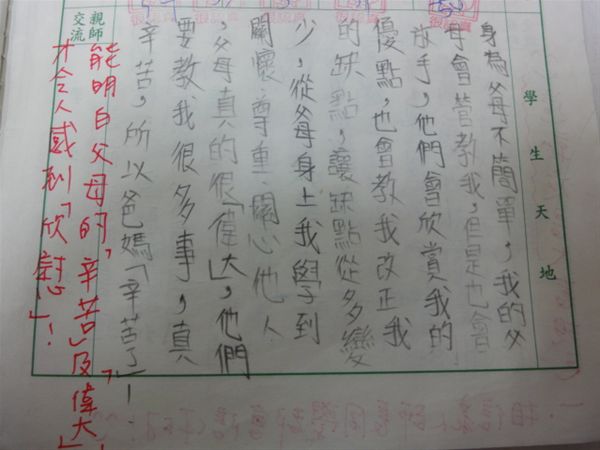 學生天地
身為父母不簡單，我的父
母會管教我，但是也會
放手，他們會欣賞我的
優點，也會教我改正我
的缺點，讓缺點從多變
少，從父母身上我學到
關懷、尊重、關心他人
，父母真的很「偉大」，他們
要教我很多事，真
辛苦，所以爸媽「辛苦了」！
親師交流
能明白父母的「辛苦」及「偉大」，
才令人感到「欣慰」！